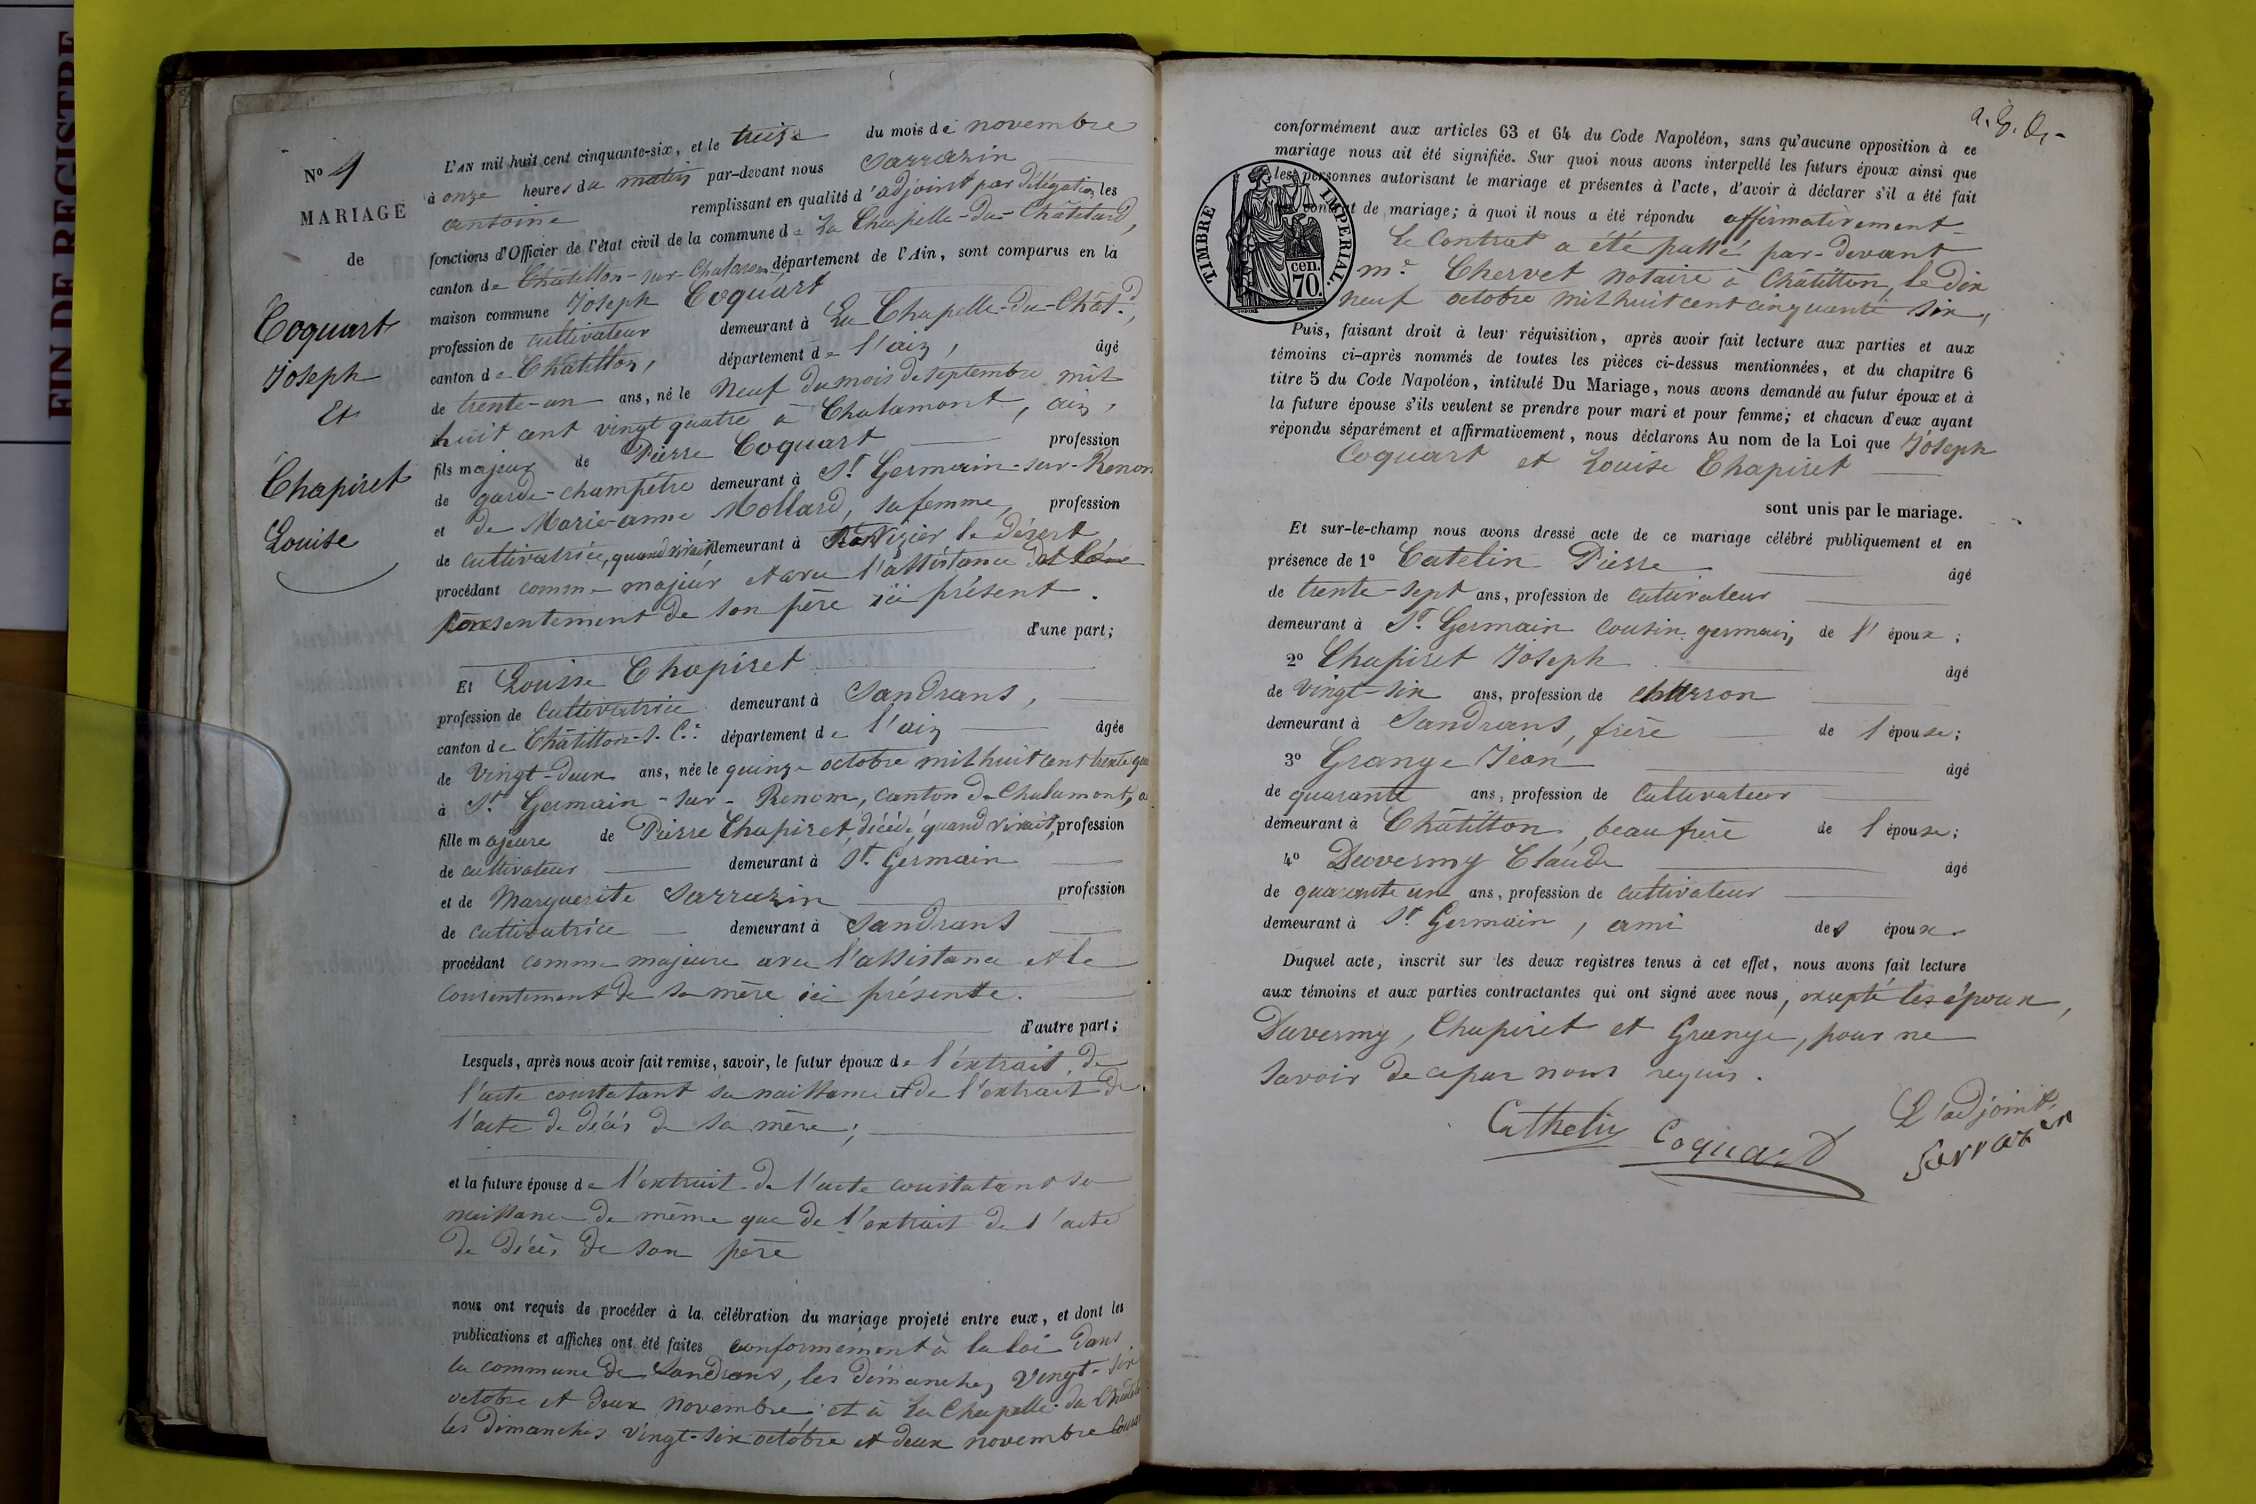 FIN DE REGISTRE
N° 4
MARIAGE
de
Coquart
Joseph
Et
Chapiret
Louise
L'AN mil huit cent cinquante-six, et le treize du mois de novembre
à onze heures du matin par-devant nous Sarrazin
antoine remplissant en qualité d'adjoint par délégation les
fonctions d'Officier de l'état civil de la commune de La Chapelle-du-Châtelard,
canton de Châtillon-sur-Chalaronne département de l'Ain, sont comparus en la
maison commune Joseph Coquart
profession de cultivateur demeurant à La Chapelle-du-Chât.d,
canton de Châtillon, département de l'ain, âgé
de trente-un ans, né le Neuf du mois de septembre mil
huit cent vingt quatre à Chalamont, ain,
fils majeur de Pierre Coquart profession
de garde-champêtre demeurant à St Germain-sur-Renon
et de Marie-anne Mollard, sa femme, profession
de cultivatrice, quand vivait demeurant à Nizier le désert
procédant comme majeur et avec l'assistance et le
consentement de son père ici présent.
d'une part;
Et Louise Chapiret
profession de Cultivatrice demeurant à Sandrans,
canton de Châtillon-s.C.: département de l'ain âgée
de Vingt-deux ans, née le quinze octobre mil huit cent trente
à St Germain-sur-Renom, canton de Chalamont,
fille majeure de Pierre Chapiret, décédé, quand vivait, profession
de cultivateur demeurant à St. Germain
et de Marguerite Sarrazin profession
de cultivatrice demeurant à Sandrans
procédant comme majeure avec l'assistance et le
consentement de sa mère ici présente.
d'autre part;
Lesquels, après nous avoir fait remise, savoir, le futur époux de l'extrait de
l'acte constatant sa naissance et de l'extrait de
l'acte de décès de sa mère;
et la future épouse de l'extrait de l'acte constatant sa
naissance de même que de l'extrait de l'acte
de décès de son père
nous ont requis de procéder à la célébration du mariage projeté entre eux, et dont les
publications et affiches ont été faites conformément à la loi dans
la commune de Sandrans, les dimanches Vingt-six
octobre et deux novembre; et à La Chapelle-du-
les dimanches vingt-six octobre et deux novembre
conformément aux articles 63 et 64 du Code Napoléon, sans qu'aucune opposition à ce
mariage nous ait été signifiée. Sur quoi nous avons interpellé les futurs époux ainsi que
les personnes autorisant le mariage et présentes à l'acte, d'avoir à déclarer s'il a été fait
contrat de mariage; à quoi il nous a été répondu affirmativement
TIMBRE IMPERIAL.
cen.
70.
Le Contrat a été passé par-devant
me. Chervet notaire à Châtillon, le dix
neuf octobre mil huit cent cinquante six,
Puis, faisant droit à leur réquisition, après avoir fait lecture aux parties et aux
témoins ci-après nommés de toutes les pièces ci-dessus mentionnées, et du chapitre 6
titre 5 du Code Napoléon, intitulé Du Mariage, nous avons demandé au futur époux et à
la future épouse s'ils veulent se prendre pour mari et pour femme; et chacun d'eux ayant
répondu séparément et affirmativement, nous déclarons Au nom de la Loi que Joseph
Coquart et Louise Chapiret
sont unis par le mariage.
Et sur-le-champ nous avons dressé acte de ce mariage célébré publiquement et en
présence de 1° Catelin Pierre âgé
de trente-sept ans, profession de cultivateur
demeurant à St. Germain cousin germain, de l'époux;
2° Chapiret Joseph âgé
de Vingt-six ans, profession de charron
demeurant à Sandrans, frère de l'épouse;
3° Grange Jean âgé
de quarante ans, profession de cultivateur
demeurant à Châtillon, beau frère de l'épouse;
4° Duvermy Claude âgé
de quarante un ans, profession de cultivateur
demeurant à St Germain, ami des époux
Duquel acte, inscrit sur les deux registres tenus à cet effet, nous avons fait lecture
aux témoins et aux parties contractantes qui ont signé avec nous, excepté les époux,
Duvermy, Chapiret et Grange, pour ne
savoir de ce par nous requis.
L'adjoint
Cathelin Coquard Sarrazin